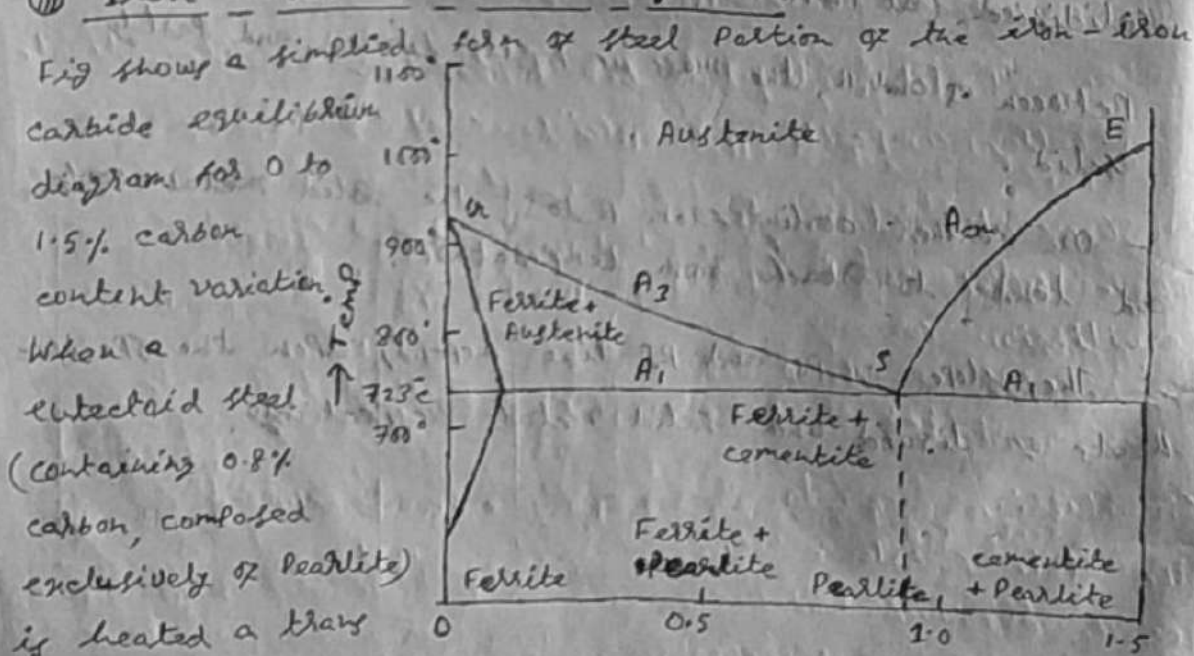 Fig shows a simplied form of steel Portion of the iron-iron
carbide equilibrium
diagram for 0 to
1.5% carbon
content variation.
When a
eutectoid steel
(containing 0.8%
carbon, composed
exclusively of Pearlite)
is heated a trans
1100°
1000°
900°
800°
723°c
700°
Temp
Austenite
E
G
Acm
A3
Ferrite +
Austenite
A1
S
A1
Ferrite +
cementite
Ferrite +
Pearlite
Ferrite
Pearlite
cementite
+ Pearlite
0
0.5
1.0
1.5